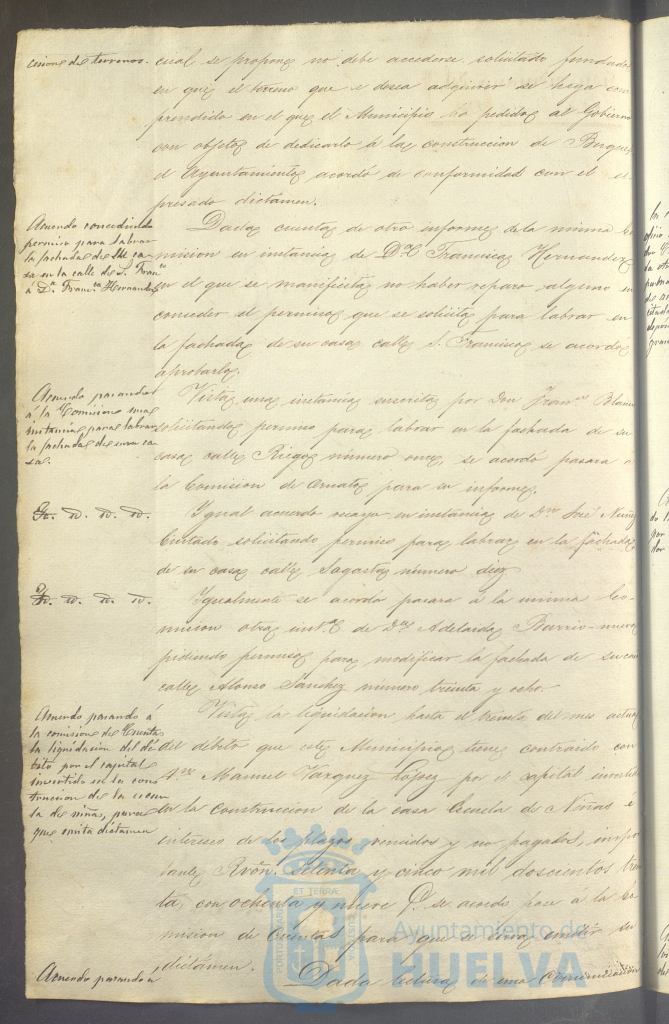 cesiones de terrenos.
cual se propone no debe accederse solicitado fundado
en que el terreno que se desea adquirir se haya com
prendido en el que el Municipio ha pedido al Gobierno
con objeto de dedicarlo a la construccion de
el Ayuntamiento acordó de conformidad con el es
presado dictámen.
Acuerdo concediendo
permiso para labrar
la fachada de su ca
sa en la calle de S. Franco
a Da. Franca Hernandez
Dada cuenta de otro informe de la misma Co
mision en instancia de Da. Francisca Hernandez
en el que se manifiesta no haber reparo alguno en
conceder el permiso que se solicita para labrar en
la fachada de su casa calle S. Francisco se acordó
aprobarlo.
Acuerdo pasando
á la Comision una
instancia para labrar
la fachada de una ca
sa.
Vista una instancia suscrita por Don Franco Blanco
solicitando permiso para labrar en la fachada de su
casa calle Riego número once, se acordó pasara a
la Comision de Ornato para su informe.
Id. Id. Id. Id.
Igual acuerdo recayo en instancia de Dn. José Nuñez
solicitando permiso para labrar en la fachada
de su casa calle Sagasta número diez
Id. Id. Id. Id.
Igualmente se acordó pasara á la misma Co
mision otra insta. de Da. Adelaida Barrio-nuevo
pidiendo permiso para modificar la fachada de su casa
calle Alonso Sanchez número treinta y ocho.
Acuerdo pasando á
la comision de Cuentas
la liquidacion del dé
bito por el capital
invertido en la cons
truccion de la escue
la de niñas, para
que emita dictámen
Vista la liquidacion hasta el treinta del mes actual
del débito que este Municipio tiene contraido con
Dn. Manuel Vazquez Lopez por el capital invertido
en la construccion de la casa Escuela de Niñas é
intereses de los plazos vencidos y no pagados, impor
tante Rvon. setenta y cinco mil doscientos trein
ta, con ochenta y nueve Cs. se acordó pase á la Co
mision de Cuentas para que se sirva emitir su
dictámen.
Acuerdo pasando a
Dada lectura de una Comunicación
ET TERRAE
CUSTODIA
Ayuntamiento de
HUELVA